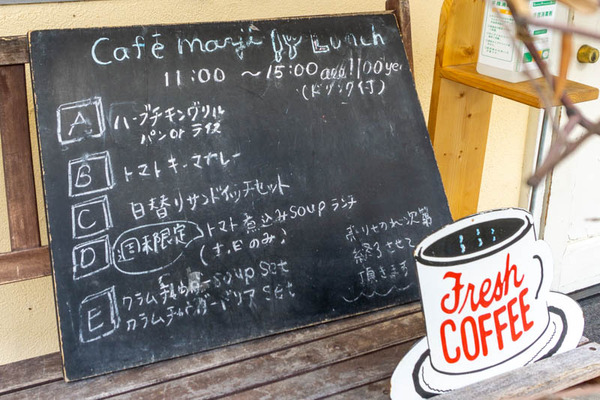 Café marji Lunch
11:00 ～15:00 1100 yen
(ドリンク付)
A ハーブチキングリル
パン or ライス
B トマトキーマカレー
C 日替りサンドイッチセット
D 週末限定 トマト煮込みsoup ランチ
(土.日のみ)
E クラムチャウダーsoup set
クラムチャウダードリア set
売り切れ次第
終了させて
頂きます
Fresh
COFFEE